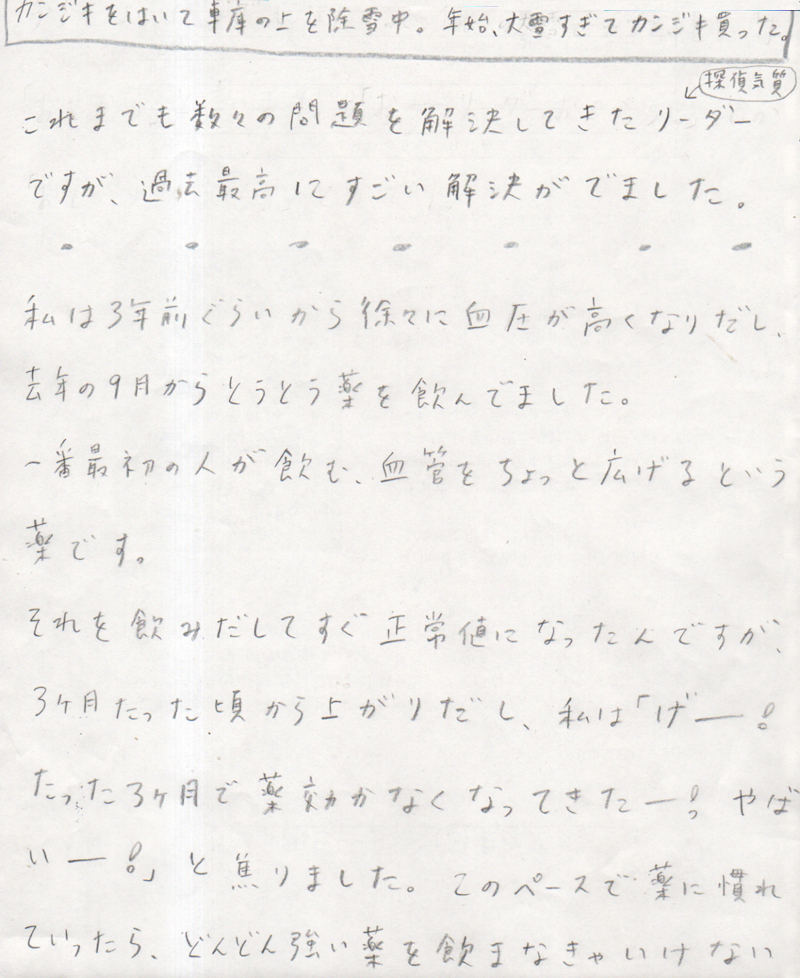 カンジキをはいて車庫の上を除雪中。年始、大雪すぎてカンジキ買った。
探偵気質
これまでも数々の問題を解決してきたリーダー
ですが、過去最高にすごい解決がでました。
私は3年前ぐらいから徐々に血圧が高くなりだし、
去年の9月からとうとう薬を飲んでました。
一番最初の人が飲む、血管をちょっと広げるという
薬です。
それを飲みだしてすぐ正常値になったんですが、
3ヶ月たった頃から上がりだし、私は「げー!
たった3ヶ月で薬効かなくなってきたー!やば
いー!」と焦りました。このペースで薬に慣れ
ていったら、どんどん強い薬を飲まなきゃいけない